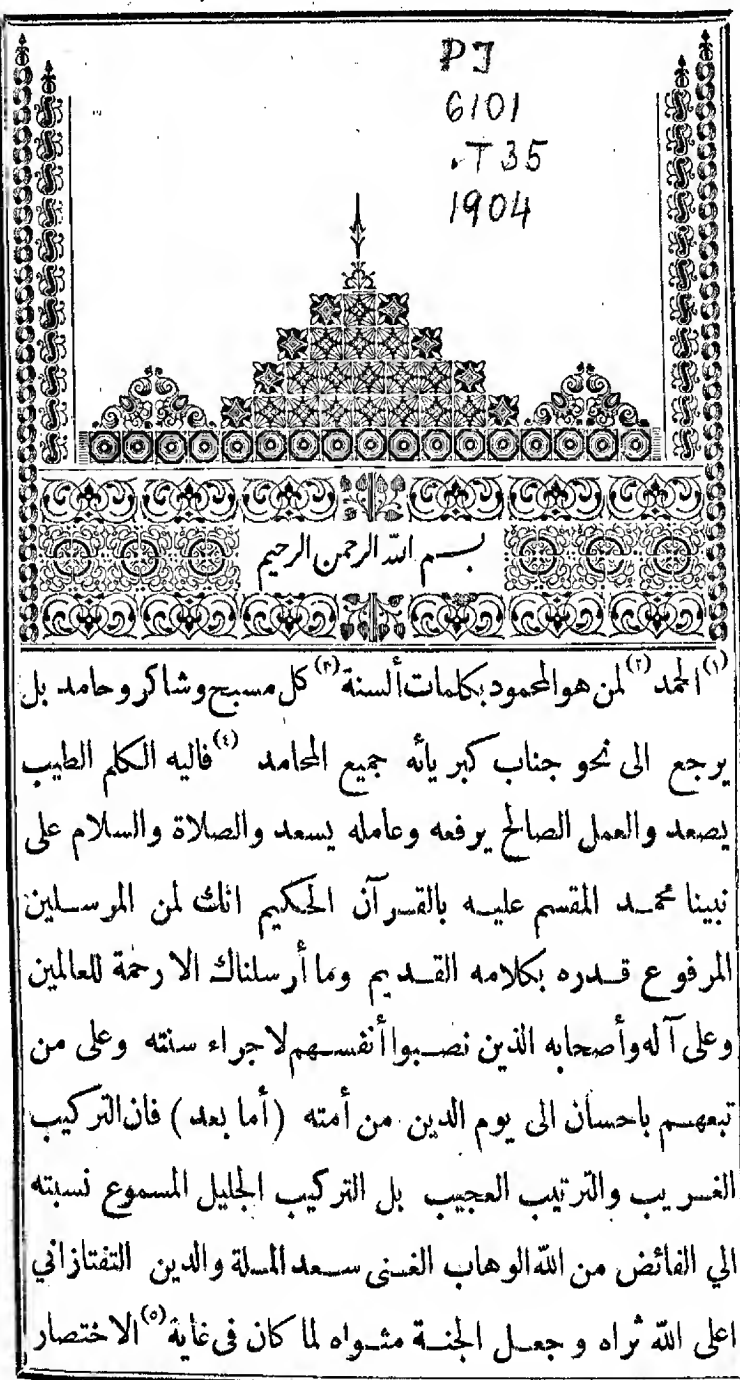 PJ
6101
.T35
1904
بسم الله الرحمن الرحيم
(١)الحمد (٢)لمن هو المحمود بكلمات ألسنة (٣)كل مسبح وشاكر وحامد بل
يرجع الى نحو جناب كبريائه جميع المحامد (٤)فاليه الكلم الطيب
يصعد والعمل الصالح يرفعه وعامله يسعد والصلاة والسلام على
نبينا محمد المقسم عليه بالقرآن الحكيم انك لمن المرسلين
المرفوع قدره بكلامه القديم وما أرسلناك الا رحمة للعالمين
وعلى آله وأصحابه الذين نصبوا أنفسهم لاجراء سنته وعلى من
تبعهم باحسان الى يوم الدين من أمته (أما بعد) فان التركيب
الغريب والترتيب العجيب بل التركيب الجليل المسموع نسبته
الي الفائض من الله الوهاب الغنى سعد الملة والدين التفتازاني
اعلى الله ثراه وجعل الجنة مثواه لما كان فى غاية (٥)الاختصار